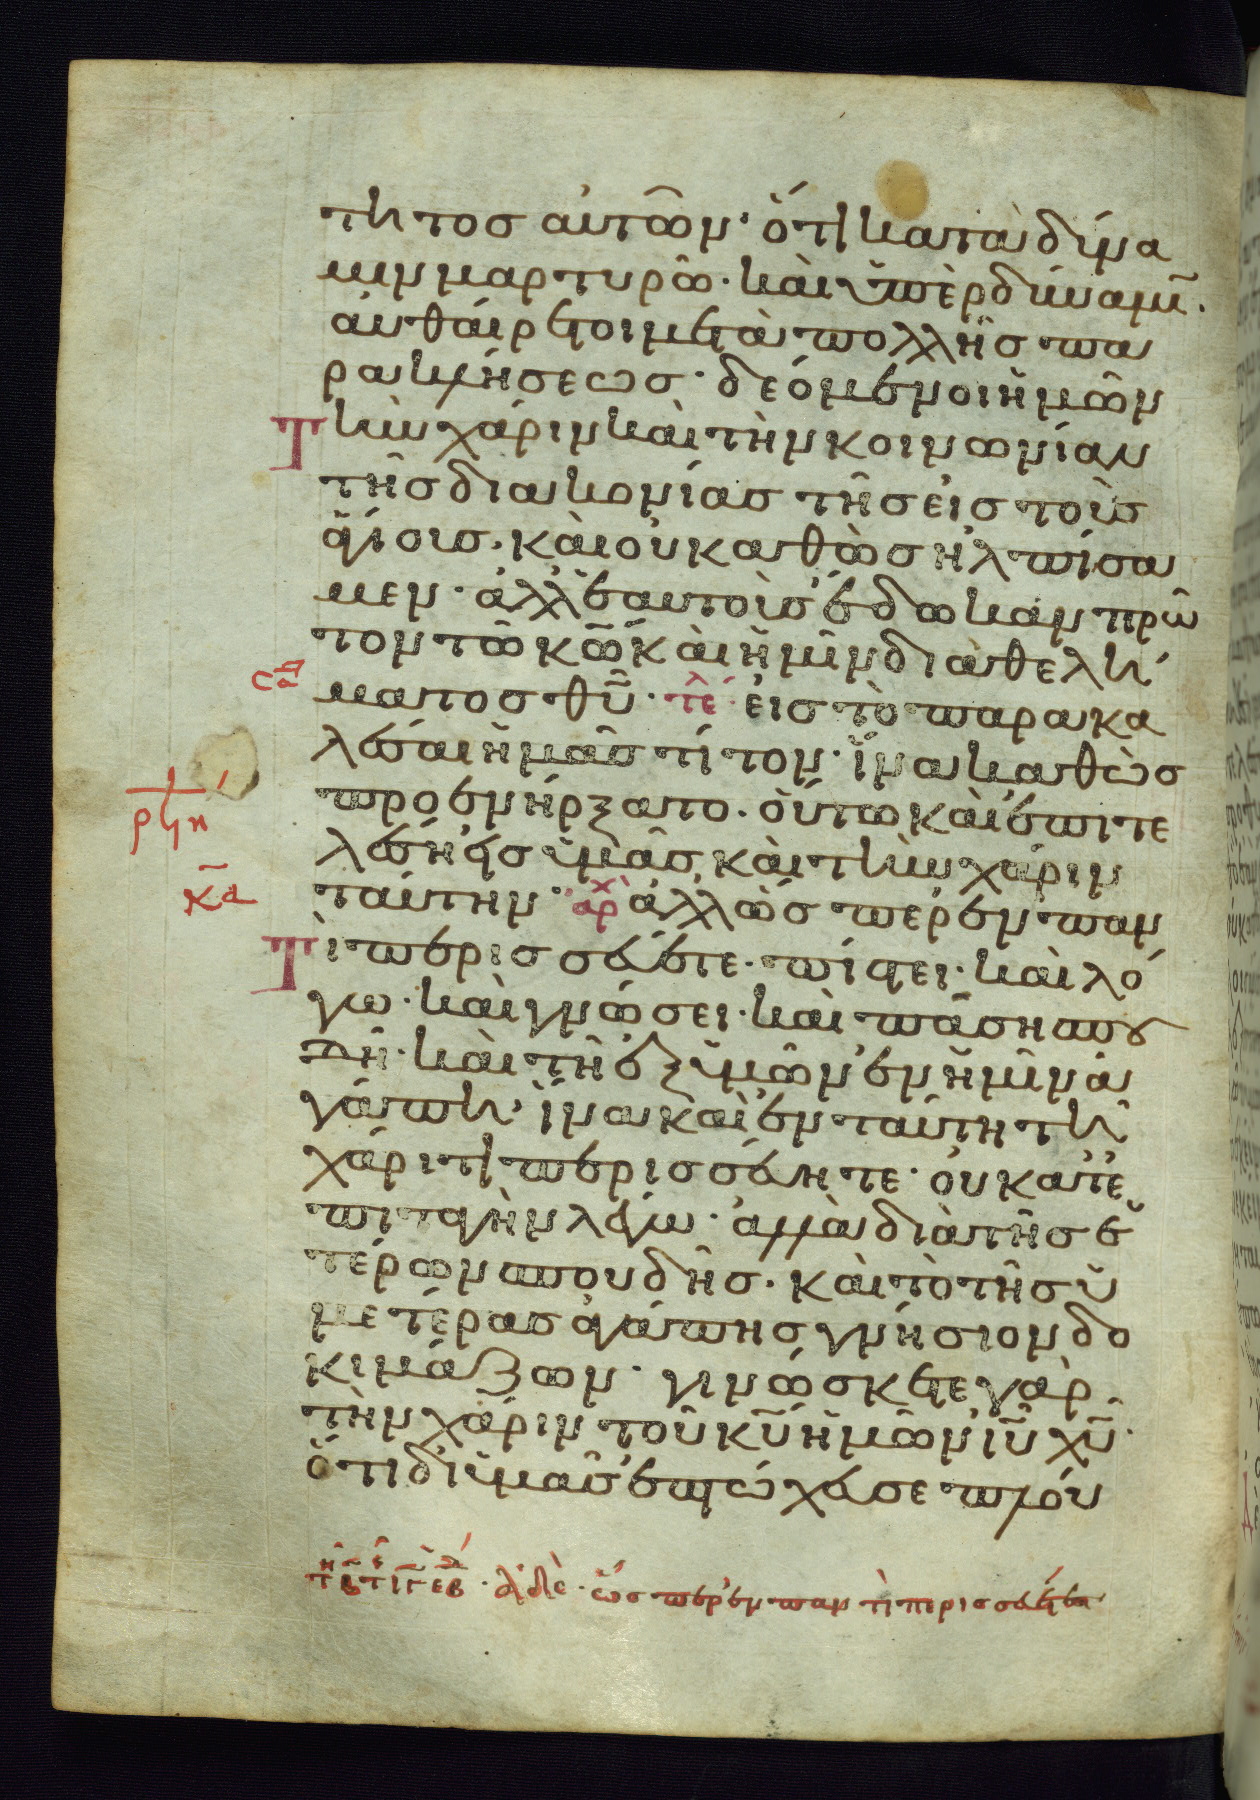 τητος αὐτῶν· ὅτι κατὰ δύνα
μιν μαρτυρῶ· καὶ ὑπὲρ δύναμῖ·
αὐθαίρετοι μετὰ πολλῆς πα
ρακλήσεως· δεόμενοι ἡμῶν
τὴν χάριν καὶ τὴν κοινωνίαν
τῆς διακονίας τῆς εἰς τοὺς
ἁγίους· καὶ οὐ καθὼς ἠλπίσα
μεν· ἀλλ' ἑαυτοὺς ἔδωκαν πρῶ
τον τῶ κ̅ω̅ καὶ ἡμῖν διὰ θελή
ματος θ̅υ̅· τέλ εἰς τὸ παρακα
λέσαι ἡμᾶς τίτον· ἵνα καθὼς
προενήρξατο· οὕτω καὶ ἐπιτε
λέσῃ εἰς ὑμᾶς καὶ τὴν χάριν
ταύτην· ἀρχ ἀλλ' ὥσπερ ἐν παν
τὶ περισσεύετε· πίστει· καὶ λό
γω· καὶ γνώσει· καὶ πάση σπου
δῆ· καὶ τῆ ἐξ ὑμῶν ἐν ἡμῖν ἀ
γάπη· ἵνα καὶ ἐν ταύτη τῆ
χάριτι περισσεύητε· οὐ κατ' ἐ
πιταγὴν λέγω· ἀλλὰ διὰ τῆς ἑ
τέρων σπουδῆς· καὶ τὸ τῆς ὑ
μετέρας ἀγάπης γνήσιον δο
κιμάζων· γινώσκετε γὰρ
τὴν χάριν τοῦ κ̅υ̅ ἡμῶν ι̅υ̅ χ̅υ̅·
ὅτι δι' ὑμᾶς ἐπτώχευσε πλού
κ̅α̅
ἀδελ· ὥσπερ ἐν παντὶ περισσεύετε